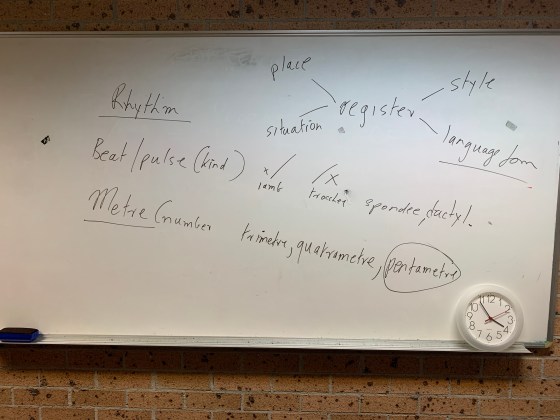 place
style
Rhythm
register
situation
language form
Beat/pulse (kind)
x /
/ x
iamb
trochee
spondee, dactyl..
Metre (number
trimetre, quatrametre, pentametre
12
1
2
3
4
5
6
7
8
9
10
11